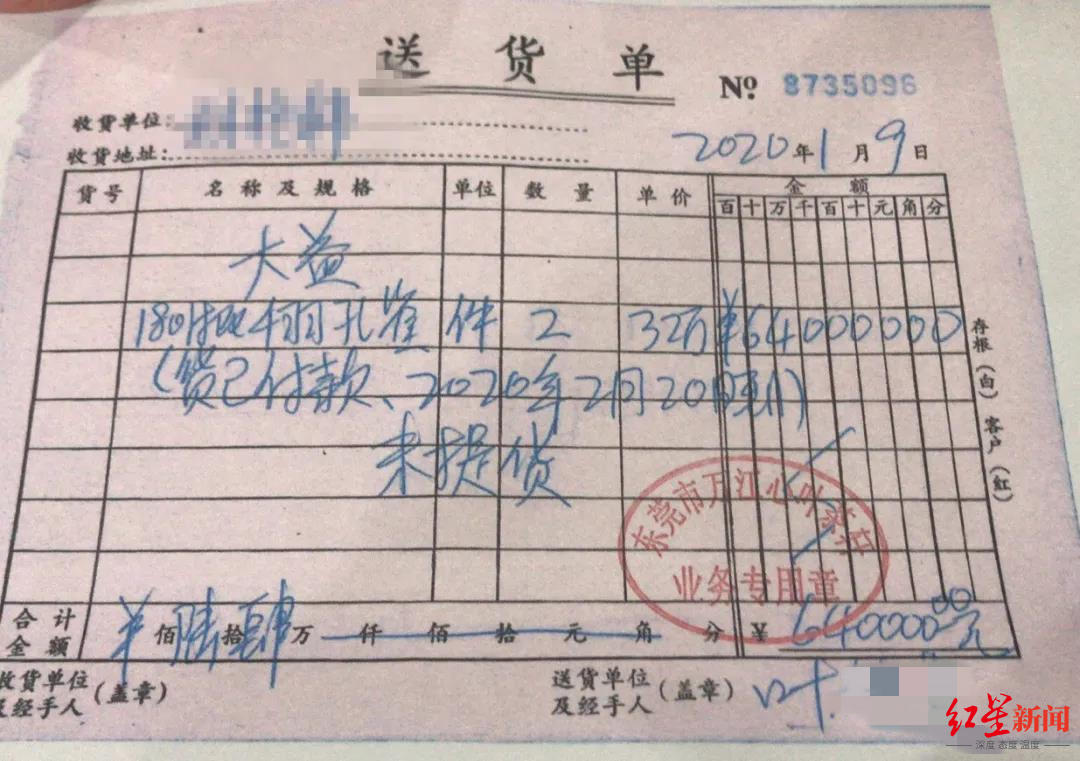 送货单
№ 8735096
收货单位:
收货地址:
2020年1月9日
货号 名称及规格 单位 数量 单价 金额
百 十 万 千 百 十 元 角 分
大益
1801批 千羽孔雀 件 2 32万 ¥64000000
(货已付款、2020年2月20日)
未提货
存根(白) 客户(红)
东莞市万江心叶茶
业务专用章
合计金额 ¥ 佰 陆 拾 肆 万 仟 佰 拾 元 角 分 ¥ 640000.00元
收货单位及经手人(盖章)
送货单位及经手人(盖章) 叶
红星新闻
深度 态度 温度